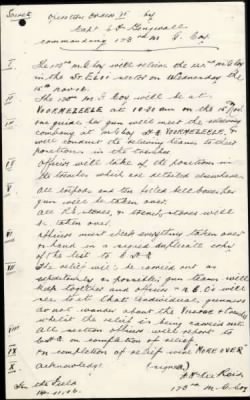 Secret Operation Orders 15 by
Capt
commanding 178th M. G. Coy
I The 178th M G Coy will relieve the M G Coy
in the St Eloi sector on Wednesday the
15th Nov. 16.
II The 178th M G Coy will be at
VOORMEZEELE at 10.30 am on the 15th
one guide per gun will meet the relieving
company at M G Coy H Q VOORMEZEELE, &
will conduct the relieving teams to their
positions in the trenches
III Officers will take of the positions in
the trenches which are detailed elsewhere
IV All tripods and ten filled belt boxes per
gun will be taken over.
V All stores, & trench stores will
be taken over
VI Officers must check everything taken over
& hand in a signed duplicate copy
of the list to C H Q
VII The relief will be carried out as
as possible, gun teams will
keep together and officers & N.C.O's will
see to it that individual gunners
do not wander about the Village & trenches
whilst the relief is being carried out.
VIII All section officers will report to
C H Q on completion of relief.
IX on completion of relief wire "MOVE OVER"
X Acknowledge
(signed)
In the Field
14.11.16.
178th M. G. Coy